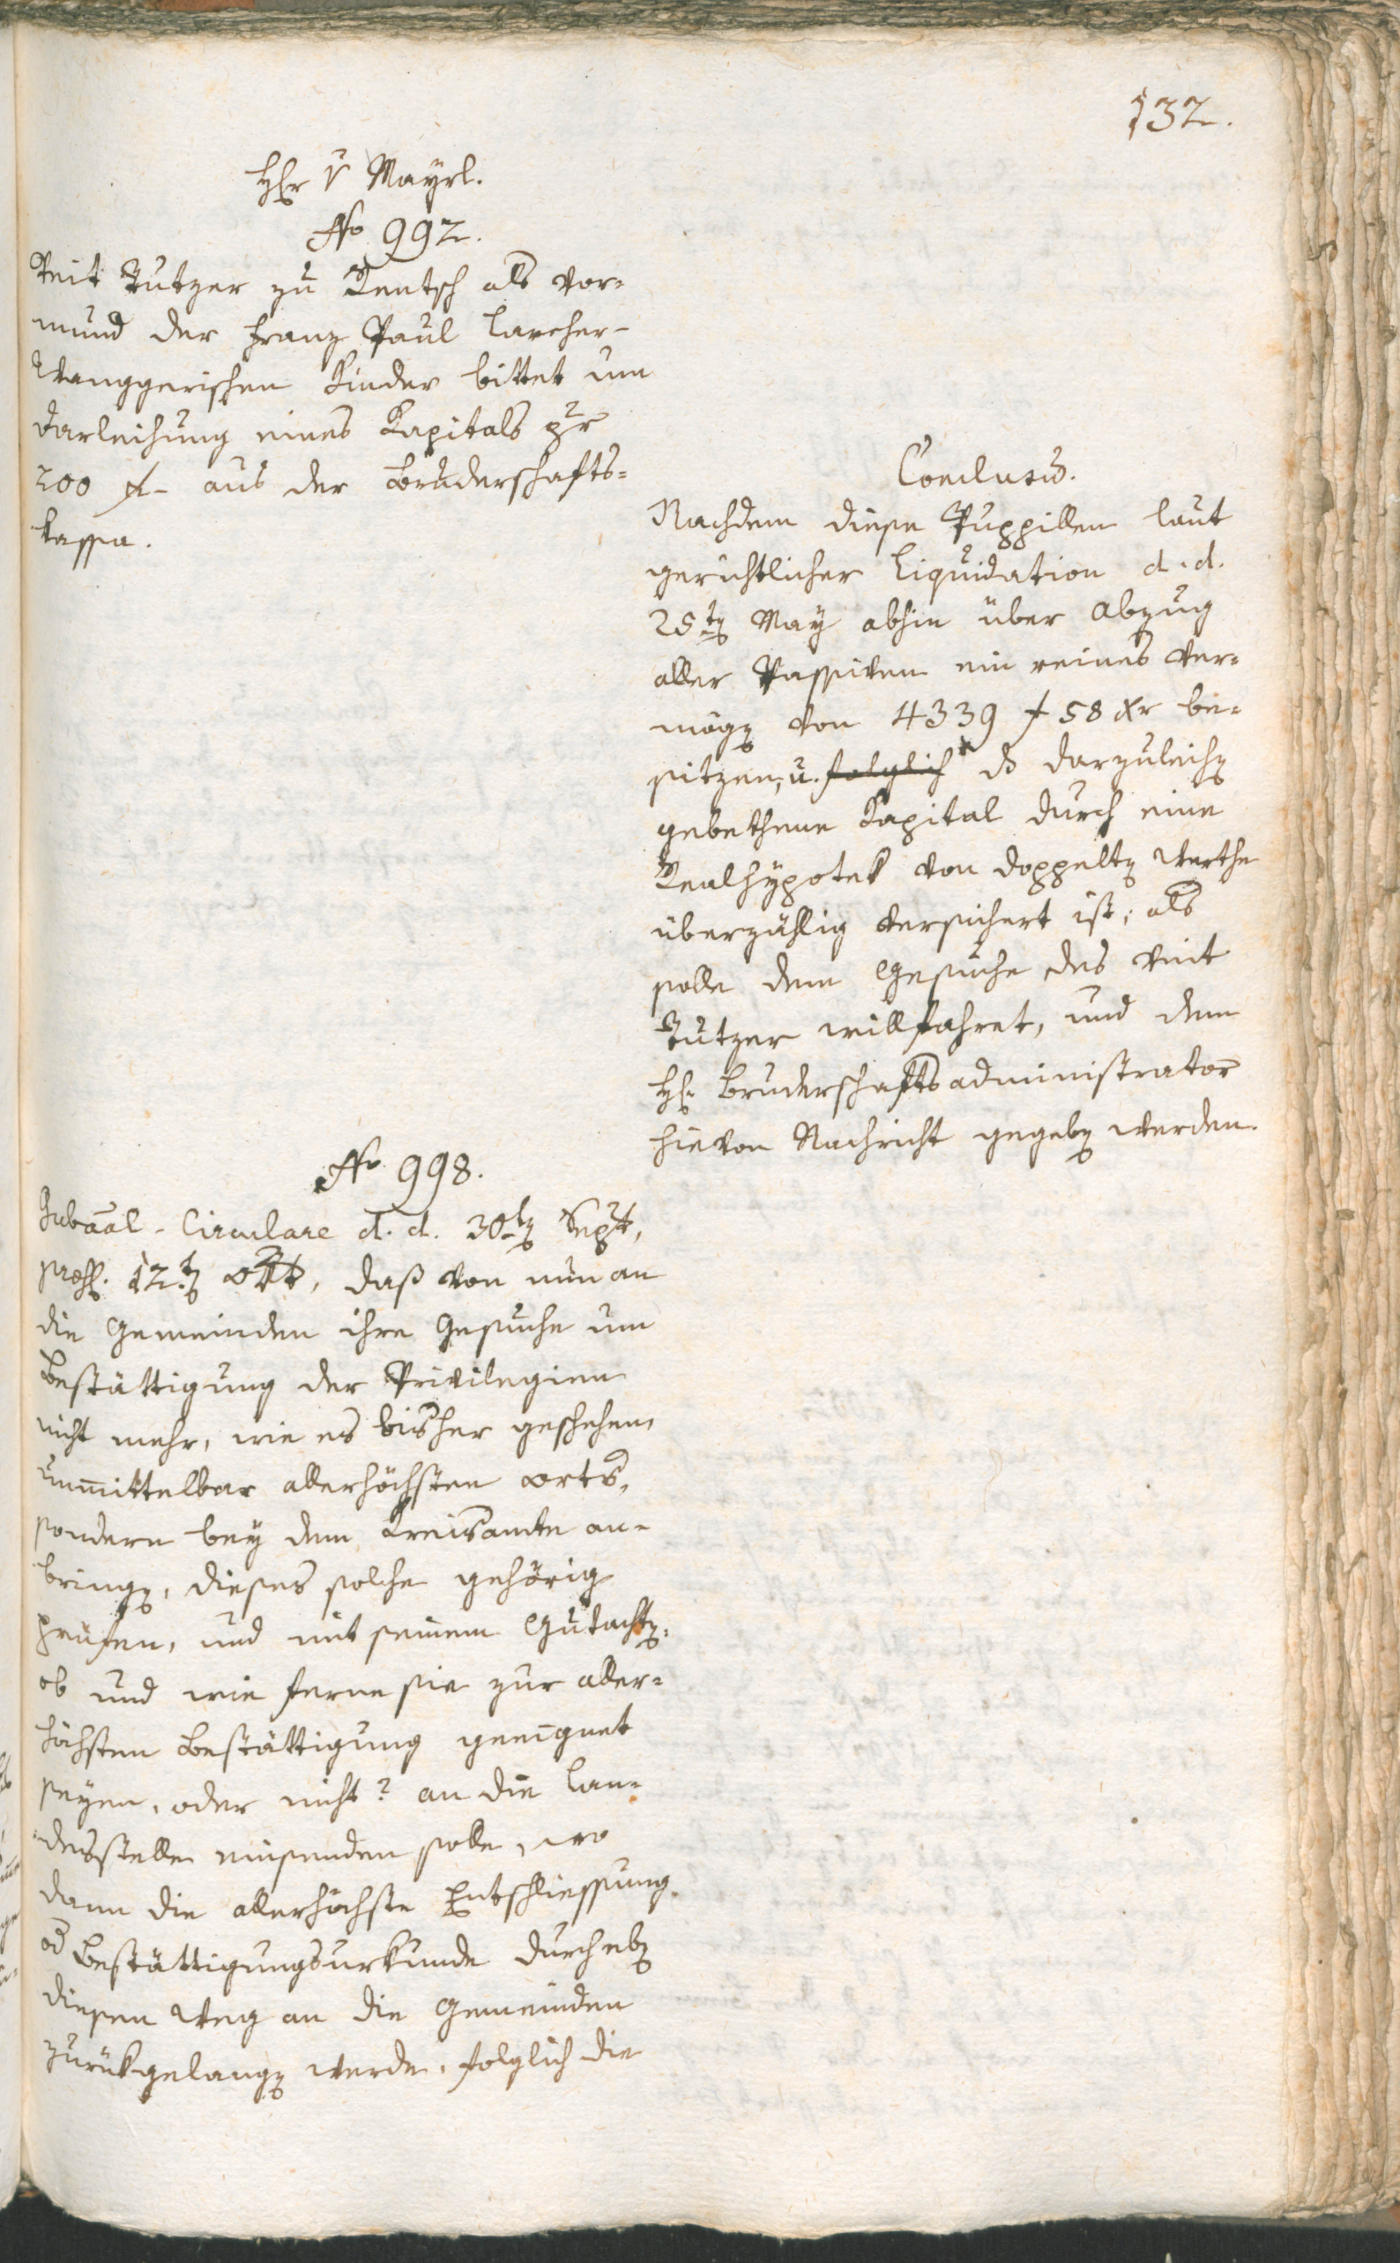 132.
Hhr v Mayrl.
No 992.
Veit Tutzer zu Rentsch als Vor-
mund der Franz Paul Larcher-
Wanggerischen Kinder bittet um
Darleihung eines Kapitals pr
200 f- aus der Bruderschafts-
kassa.
Conclusū.
Nachdem diese Puppillen laut
gerichtlicher Liquidation d. d.
25ten May abhin über Abzug
aller Passiven ein reines Ver-
mögen von 4339 f 58 xr be-
sitzen, u. folglich ds darzuleihen
gebethene Kapital durch eine
Realhÿpotek von doppelten Werthe
überzählig versichert ist; als
solle dem Gesuche des Veit
Tutzer willfahret, und dem
Hh. Bruderschaftsadministrator
hievon Nachricht gegeben werden.
No 998.
Gubaal-Circulare d. d. 30ten Sept,
præs. 12ten 8bt, daß von nun an
die Gemeinden ihre Gesuche um
Bestättigung der Privilegien
nicht mehr, wie es bisher geschehen,
unmittelbar allerhöchsten Orts,
sondern beÿ dem Kreisamte an-
bringen, dieses solche gehörig
prüfen, und mit seinem Gutachten,
ob und wie ferne sie zur aller-
höchsten Bestättigung geeignet
seyen, oder nicht? an die Lan-
desstelle einsenden solle, wo
dann die allerhöchste Entschliessung
od Bestättigungsurkunde durch eben
diesen Weg an die Gemeinden
zurükgelangen werde, folglich die